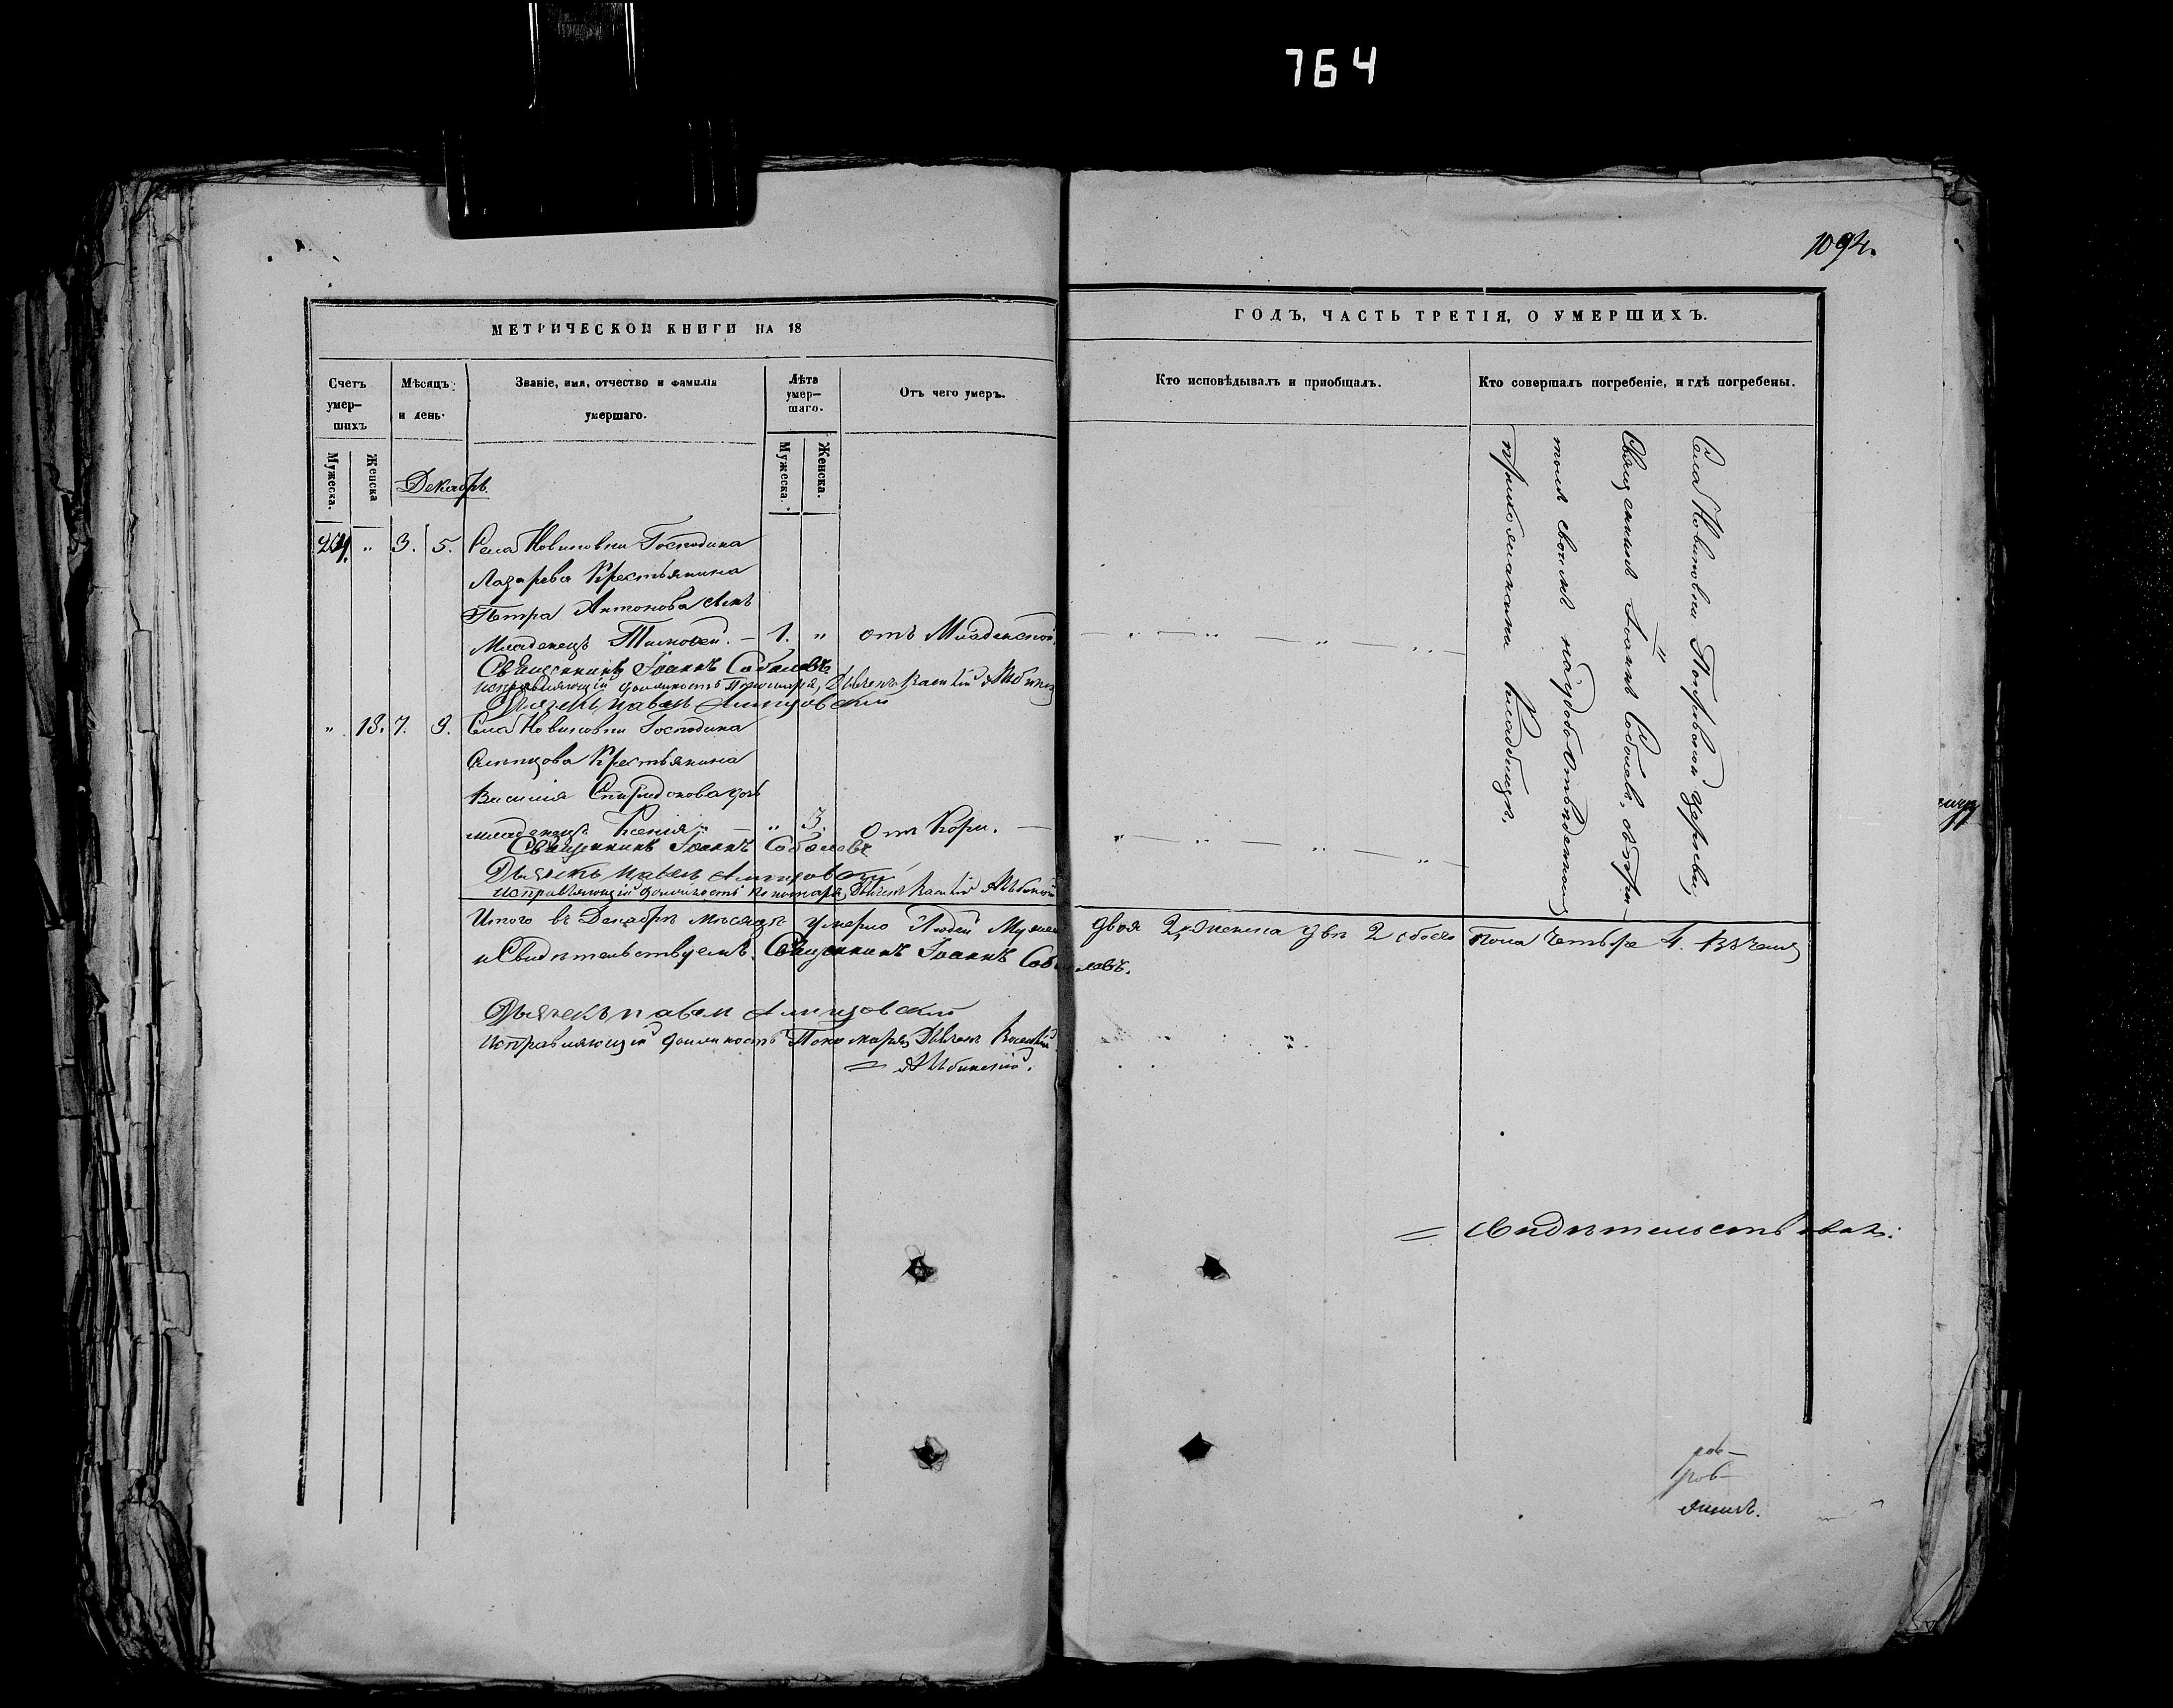 764
1094.
МЕТРИЧЕСКОЙ КНИГИ НА 18
ГОДЪ, ЧАСТЬ ТРЕТІЯ, О УМЕРШИХЪ.
Счетъ умер–шихъ
Мѣсяцъ и день.
Званіе, имя, отчество и фамилія умершаго.
Лѣта умер–шаго.
Отъ чего умеръ.
Кто исповѣдывалъ и приобщалъ.
Кто совершалъ погребеніе, и гдѣ погребены.
Мужеска.
Женска
Мужеска.
Женска.
Декабрь.
" 3. 5. Села Новиковки Господина
Лазарева Крестьянина
Петра Антонова сынъ
Младенецъ Тимофей. — 1. " отъ Младенской
Священникъ Іоаннъ Соболевъ
исправляющій должность Пономаря, Дьячекъ Василій
Дьячекъ Павелъ
" 18. 7. 9. Села Новиковки Господина
Слепцова Крестьянина
Василія Спиридонова дочь
младенецъ Ксенія — " 3. отъ Кори. —
Священникъ Іоаннъ Соболевъ
Дьячекъ Павелъ
исправляющій должность Пономаря, Дьячекъ Василій
Села Новиковки Покровской церкви,
Священникъ Іоаннъ Соболевъ, съ при–
томъ своимъ на удобоотведенномъ
прихожанами кладбищѣ.
Итого въ Декабрѣ мѣсяцѣ умерло Людей Мужеска двоя 2, Женска двѣ 2 обоего пола четыре 4. В чемъ
и Свидѣтельствуемъ. Священникъ Іоаннъ Соболевъ.
Дьячекъ Павелъ
исправляющій должность Пономаря, Дьячекъ Василій
= Свидѣтельствовалъ: